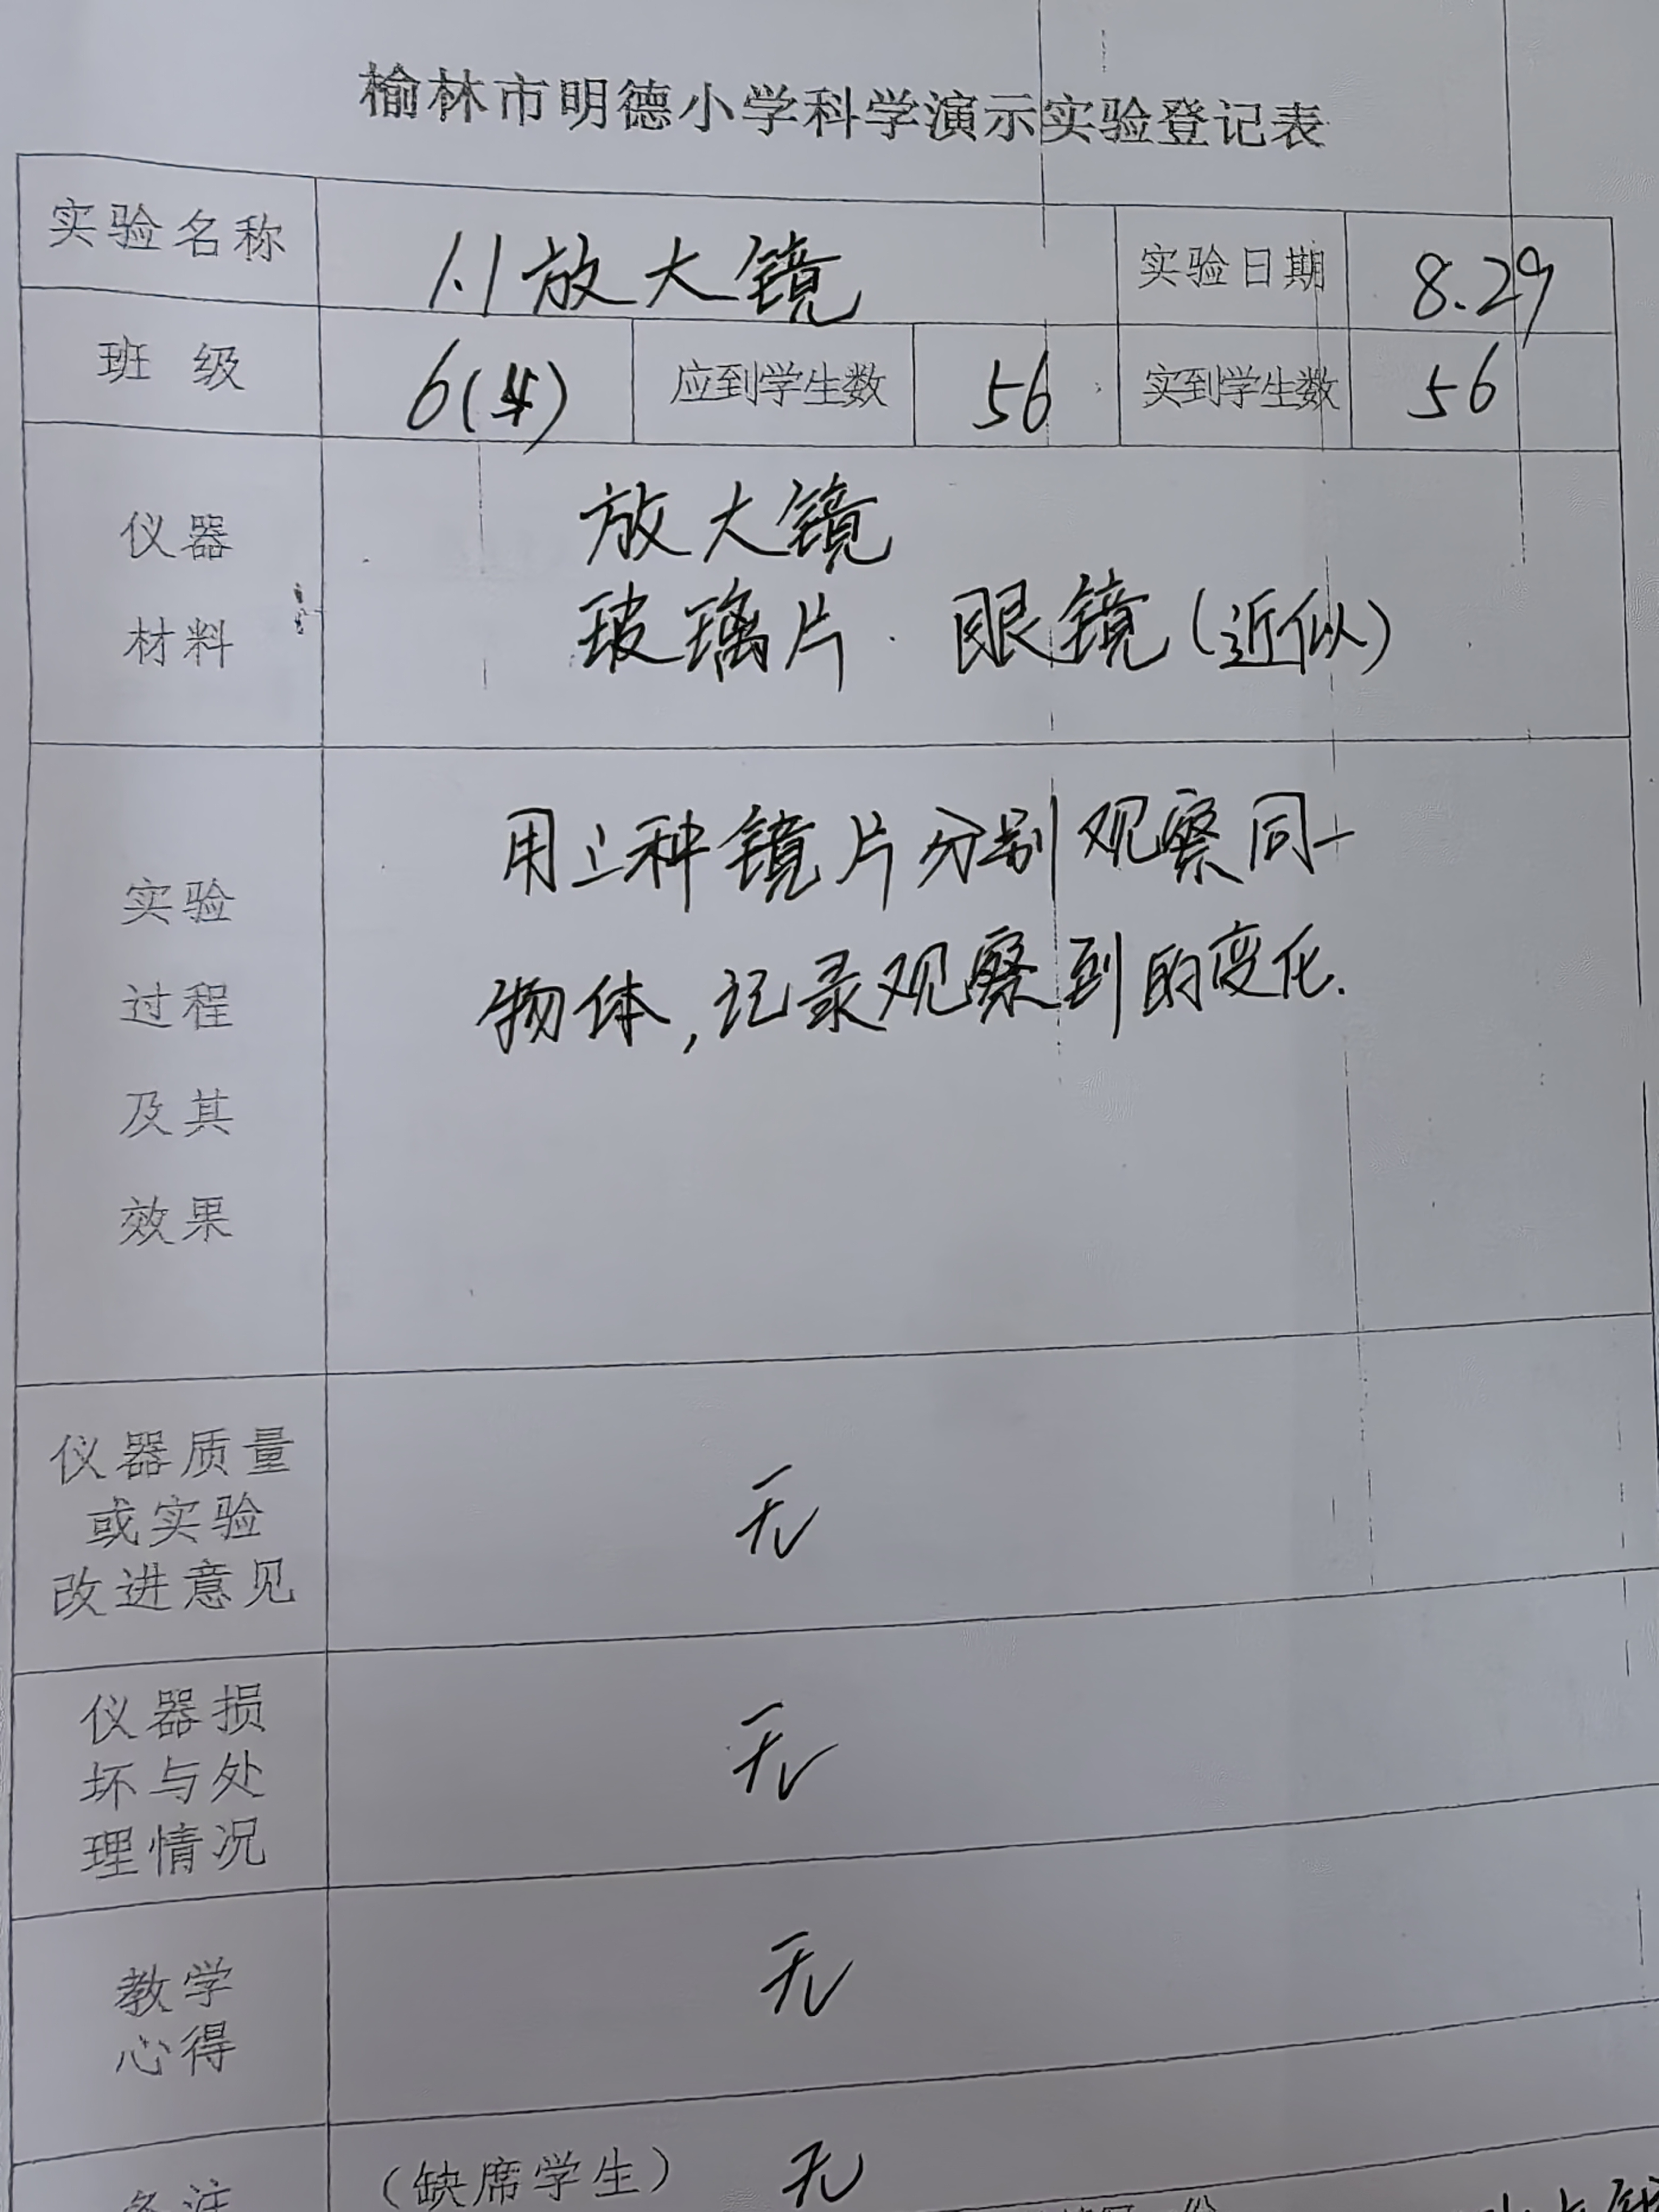 榆林市明德小学科学演示实验登记表
实验名称 1.1放大镜 实验日期 8.29
班 级 6(4) 应到学生数 56 实到学生数 56
仪器
材料
放大镜
玻璃片. 眼镜(近似)
用三种镜片分别观察同一
物体,记录观察到的变化.
实验
过程
及其
效果
仪器质量
或实验
改进意见
无
仪器损
坏与处
理情况
无
教学
心得
无
备注 (缺席学生) 无